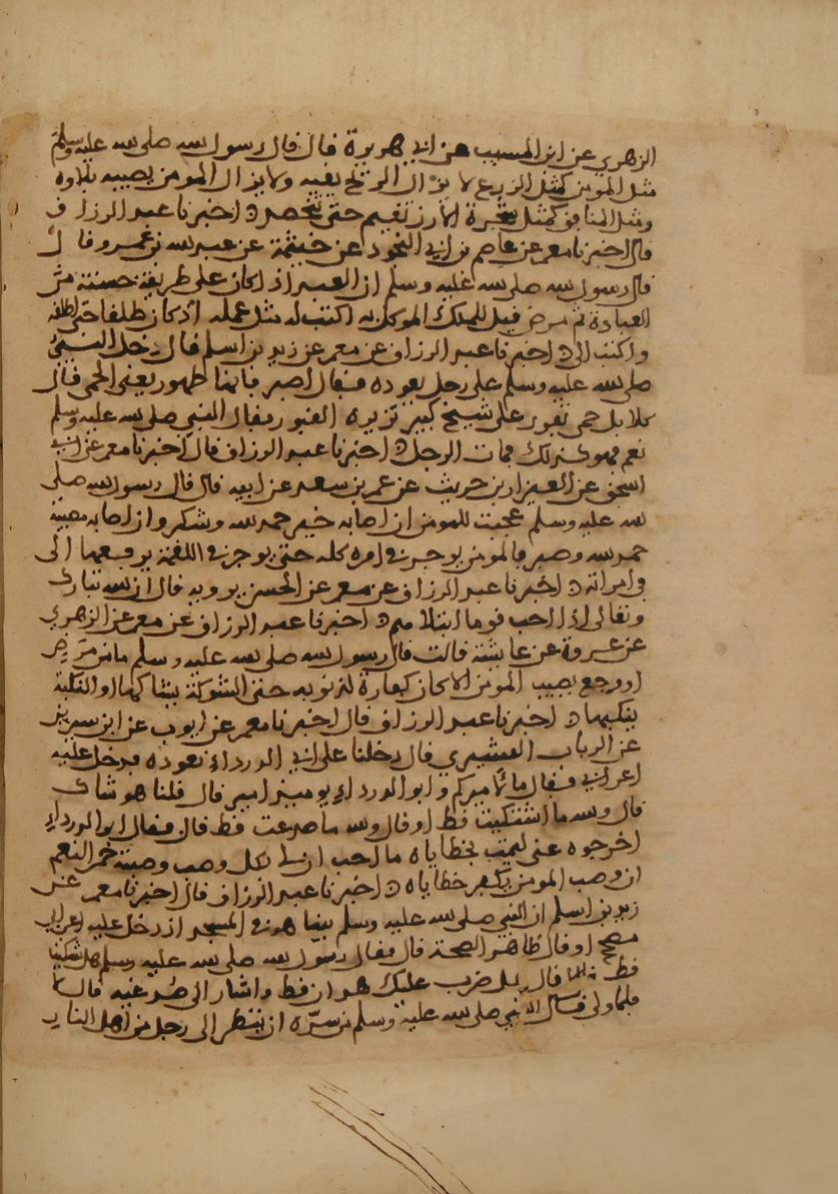 الزهري عن ابن المسيب عن ابي هريرة قال قال رسول الله صلى الله عليه وسلم
مثل المومن كمثل الزرع لا تزال الريح تفيه ولا يزال المومن يصيبه بلاوه
ومثل المنافق كمثل شجرة الارز تقيم حتى تحصد اخبرنا عبد الرزاق
قال اخبرنا معمر عن عاصم بن ابي النجود عن خيثمة عن عبد الله بن عمرو قال
قال رسول الله صلى الله عليه وسلم ان العبد اذا كان على طريقة حسنة من
العبادة ثم مرض قيل للملك الموكل به اكتب له مثل عمله اذ كان طلقا حتى اطلقه
واكفته الي اخبرنا عبد الرزاق عن معمر عن زيد بن اسلم قال دخل النبي
صلى الله عليه وسلم على رجل يعوده فقال اصبر فانها طهور يعني الحمى قال
كلا بل حمى تفور على شيخ كبير تزيره القبور فقال النبي صلى الله عليه وسلم
نعم فهو كذلك فمات الرجل اخبرنا عبد الرزاق قال اخبرنا معمر عن ابي
اسحق عن العيزار بن حريث عن عمر بن سعد عن ابيه قال قال رسول الله صلى
الله عليه وسلم عجبت للمومن ان اصابه خير حمد الله وشكر وان اصابه مصيبة
حمد الله وصبر فالمومن يوجر في امره كله حتى يوجر في اللقمة يرفعها الى
في امراته اخبرنا عبد الرزاق عن معمر عن الحسن يرويه قال ان الله تبارك
وتعالى اذا احب قوما ابتلاهم اخبرنا عبد الرزاق عن معمر عن الزهري
عن عروة عن عايشة قالت قال رسول الله صلى الله عليه وسلم ما من مرض
او وجع يصيب المومن الا كان كفارة لذنوبه حتى الشوكة يشاكها او النكبة
ينكبها اخبرنا عبد الرزاق قال اخبرنا معمر عن ايوب عن ابن سيرين
عن الرباب القشيري قال دخلنا على ابي الدرداء نعوده فدخل عليه
اعرابي فقال ما لاميركم وابو الدرداء يوميذ امير قال قلنا هو شاك
قال والله ما اشتكيت قط او قال والله ما صدعت قط قال فقال ابو الدرداء
اخرجوه عني ليمت بخطاياه ما احب ان لي بكل وصب وصبته حمر النعم
ان وصب المومن يكفر خطاياه اخبرنا عبد الرزاق قال اخبرنا معمر عن
زيد بن اسلم ان النبي صلى الله عليه وسلم بينا هو في المسجد اذ دخل عليه اعرابي
مصحح او قال ظاهر الصحة قال فقال رسول الله صلى الله عليه وسلم هل اشتكيت
قط قال لا قال هل ضرب عليك هذان قط واشار الى صدغيه قال لا
فلما ولى قال النبي صلى الله عليه وسلم من سره ان ينظر الى رجل من اهل النار